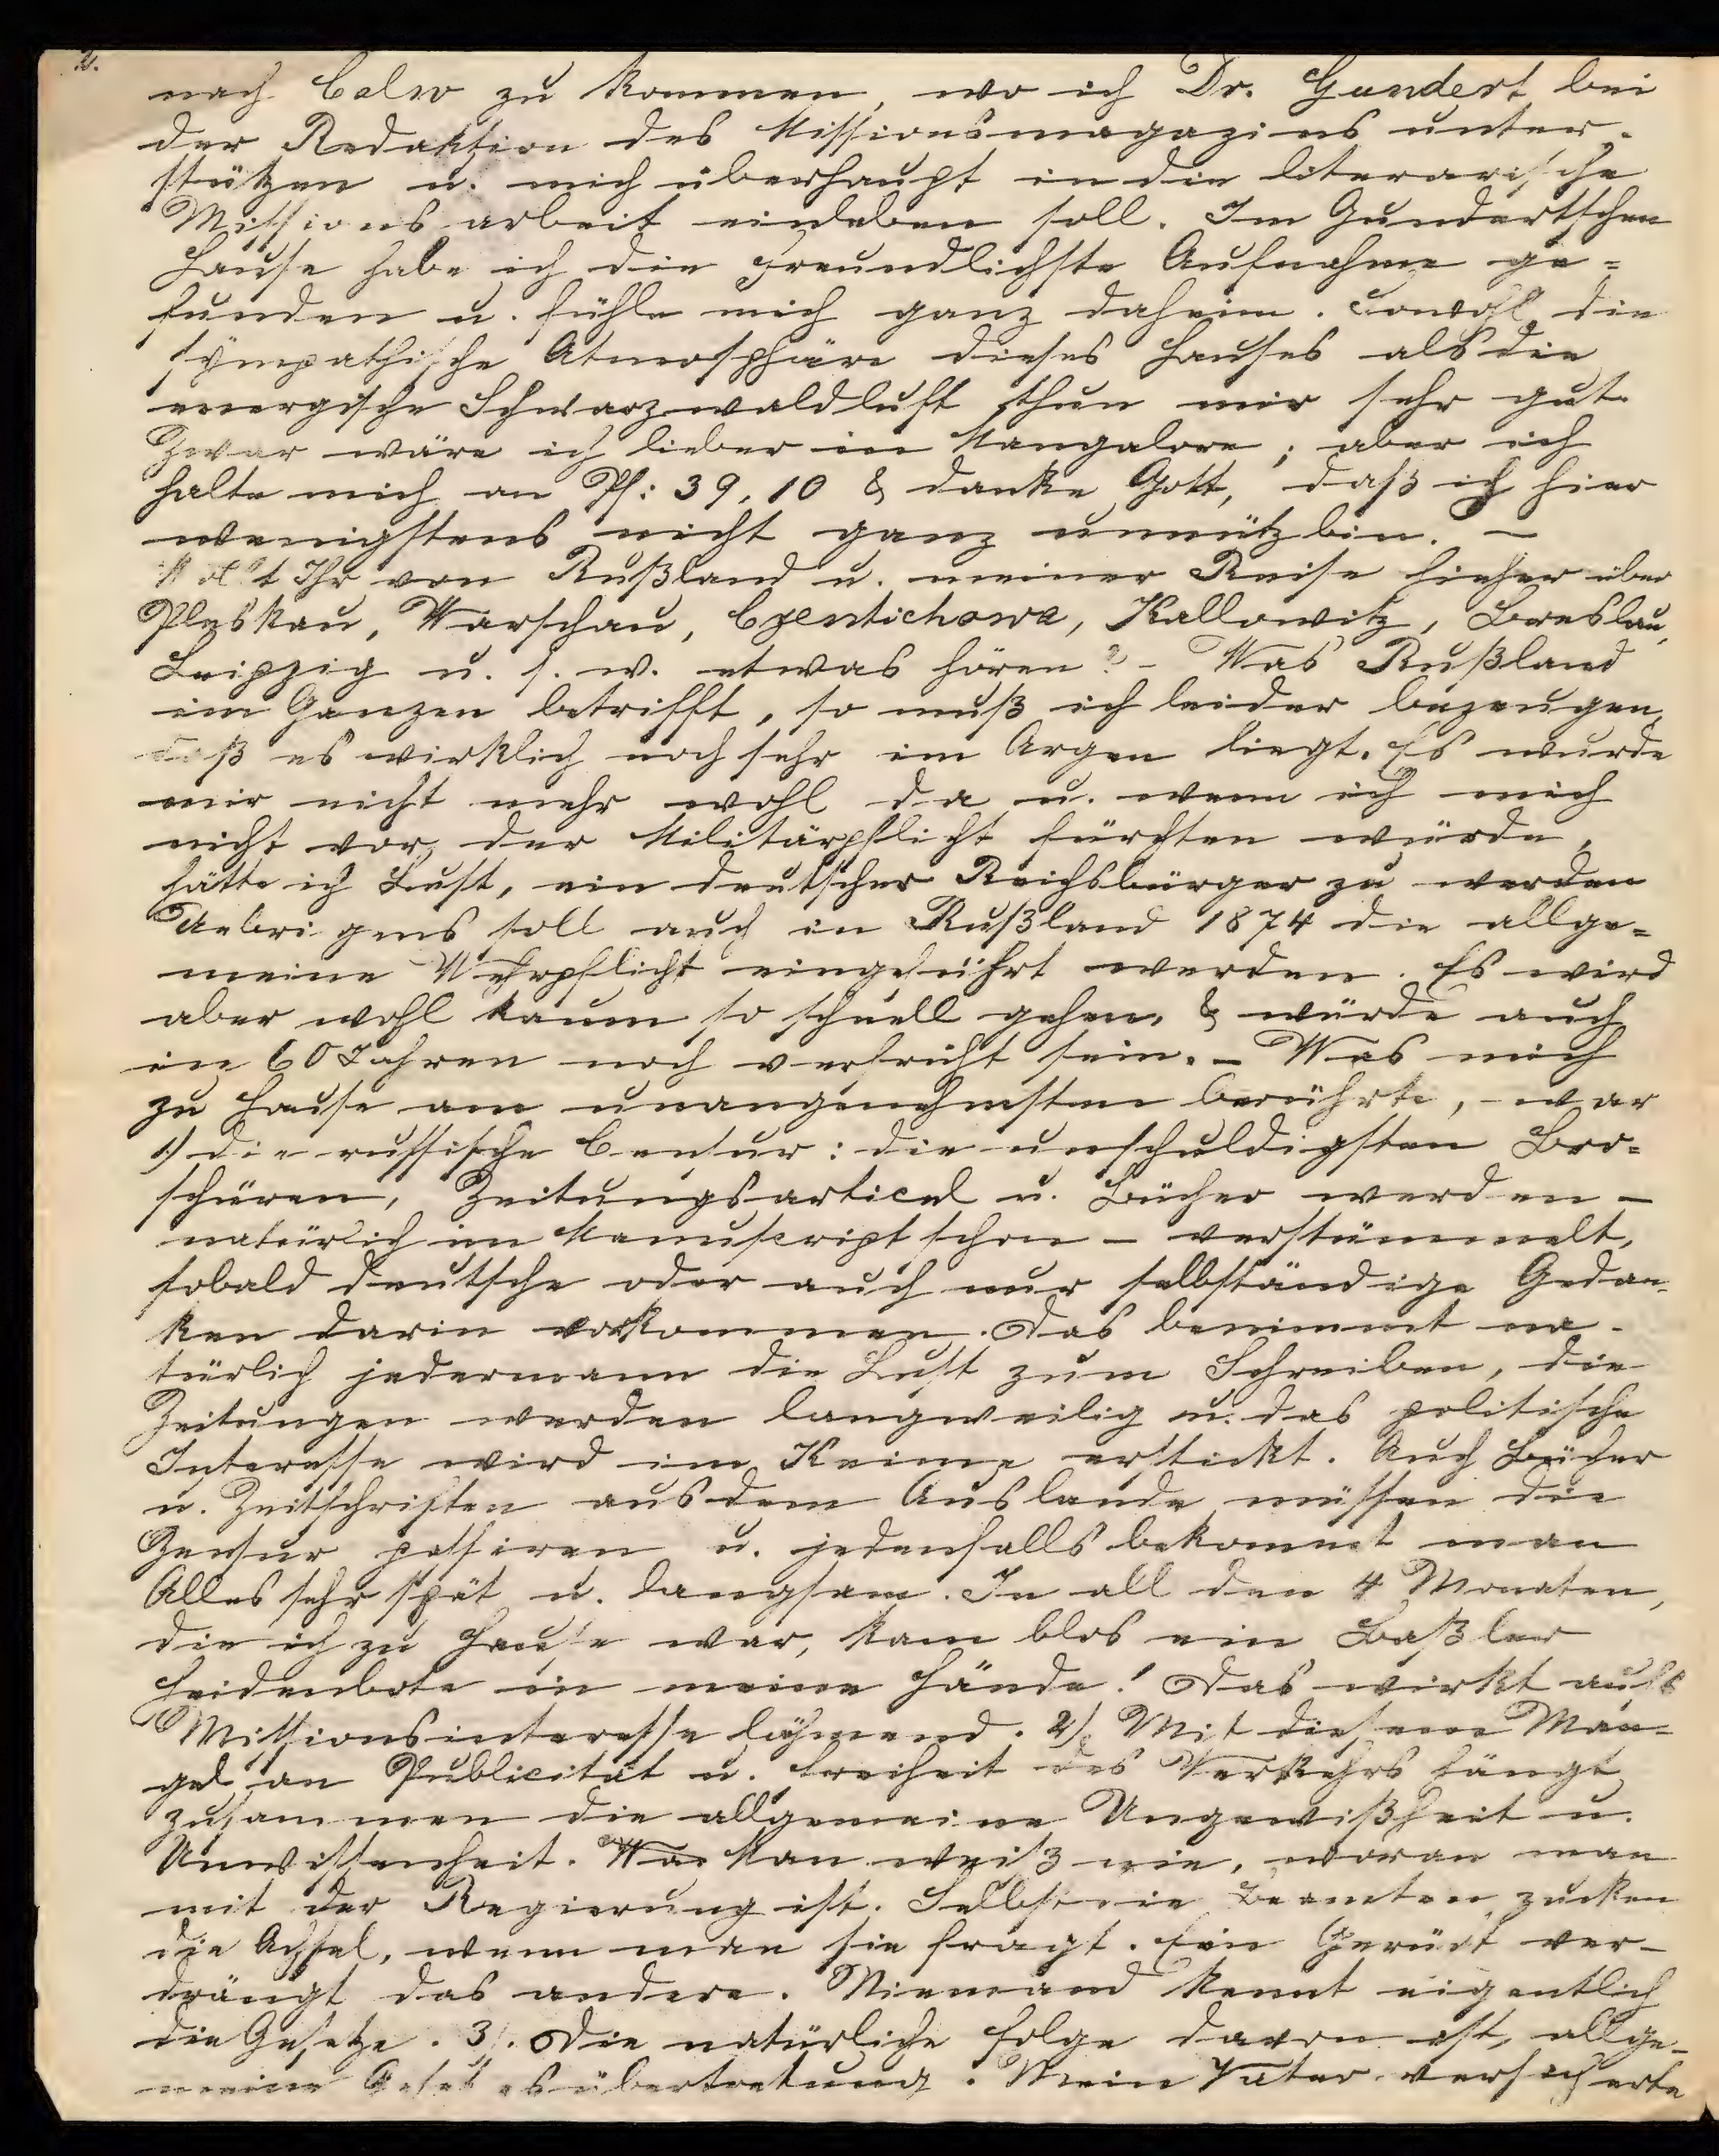 2.
nach Calw zu kommen, wo ich Dr. Gundert bei
der Redaktion des Missionsmagazins unter-
stützen u. mich überhaupt in die literarische
Missionsarbeit einleben soll. Im Gundertschen
Hause habe ich die freundlichste Aufnahme ge=
funden u. fühle mich ganz daheim. Sowohl die
sympathische Atmosphäre dieses Hauses als die
energische Schwarzwaldluft thun mir sehr gut.
Zwar wäre ich lieber in Mangalore; aber ich
halte mich an Ps: 39,10 & danke Gott, daß ich hier
wenigstens nicht ganz unnütz bin. –
Wollt Ihr von Rußland u. meiner Reise hieher über
Pleskau, Warschau, Czentichowa, Kattowitz, Breslau,
Leipzig u. s. w. etwas hören? – Was Rußland
im Ganzen betrifft, so muß ich leider bezeugen,
daß es wirklich noch sehr im Argen liegt. Es wurde
mir nicht mehr wohl da u. wenn ich mich
nicht vor der Militärpflicht fürchten würde,
hätte ich Lust, ein deutscher Reichsbürger zu werden
Uebrigens soll auch in Rußland 1874 die allge=
meine Wehrpflicht eingeführt werden. Es wird
aber wohl kaum so schnell gehen, & würde auch
in 60 Jahren noch verfrüht sein. – Was mich
zu Hause am unangenehmsten berührte, – war
1) die russische Censur: die unschuldigsten Bro=
schüren, Zeitungsarticel u. Bücher werden –
natürlich im Manuscript schon – verstümmelt,
sobald deutsche oder auch nur selbständige Gedan-
ken darin vorkommen. Das benimmt na-
türlich jedermann die Lust zum Schreiben, die
Zeitungen werden langweilig u. das politische
Interesse wird im Keime erstickt. Auch Bücher
u. Zeitschriften aus dem Auslande müssen die
Zensur passiren u. jedenfalls bekommt man
Alles sehr spät u. langsam. In all den 4 Monaten,
die ich zu Hause war, kam blos ein Baßler
Heidenbote in meine Hände! Das wirkt aufs
Missionsinteresse lähmend. 2). Mit diesem Man-
gel an Publicität u. Freiheit des Verkehrs hängt
zusammen die allgemeine Ungewißheit u.
Unwissenheit. Man weiß nie, woran man
mit der Regierung ist. Selbst die Beamten zucken
die Achsel, wenn man sie fragt. Ein Gerücht ver-
drängt das andere. Niemand kennt eigentlich
die Gesetze. 3). Die natürliche Folge davon ist, allge-
meine Gesetzesübertretung. Mein Vater versicherte